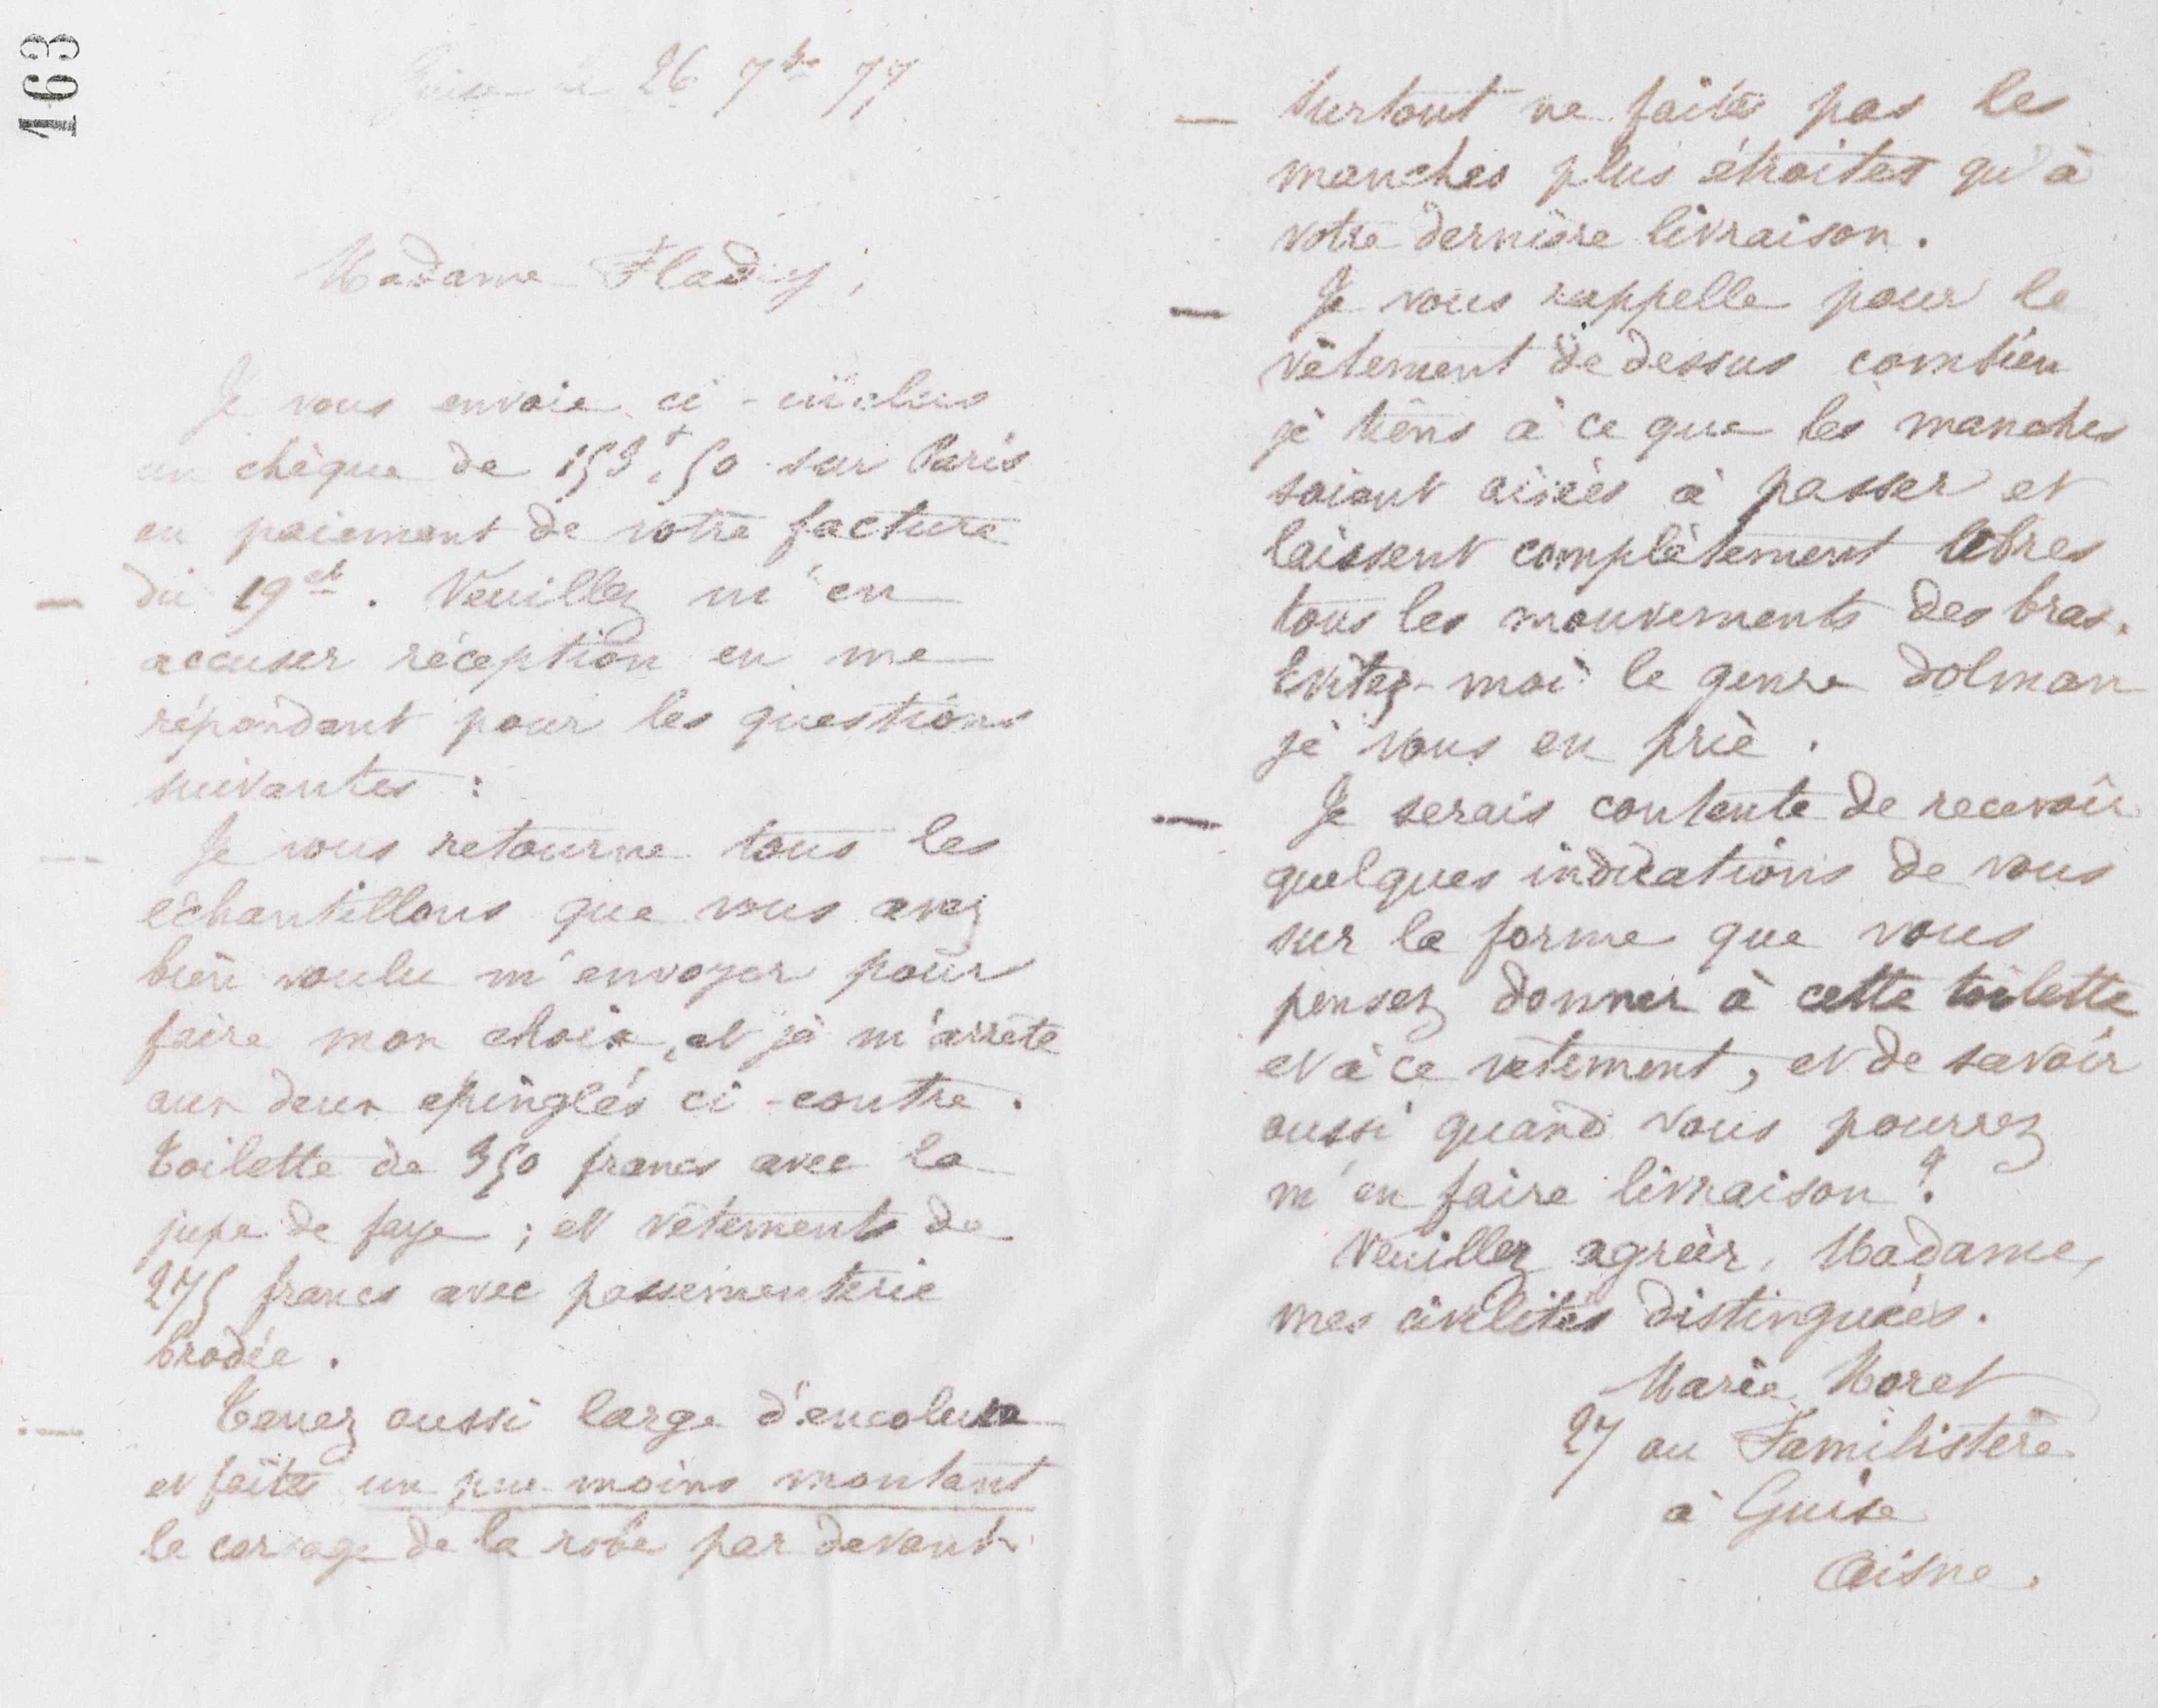 163
Guise le 26 7bre 77
Madame Fladry,
Je vous envoie ci-inclus
un chèque de 153f,50 sur Paris
en paiement de votre facture
du 19ct. Veuillez m'en
accuser réception en me
répondant pour les questions
suivantes :
Je vous retourne tous les
échantillons que vous avez
bien voulu m'envoyer pour
faire mon choix, et je m'arrête
aux deux épinglés ci-contre.
Toilette de 350 francs avec la
jupe de faye ; et vêtements de
275 francs avec passementerie
brodée.
Tenez aussi large d'encolure
et faites un peu moins montant
le corsage de la robe par devant.
Surtout ne faites pas les
manches plus étroites qu'à
votre dernière livraison.
Je vous rappelle pour le
vêtement de dessus combien
je tiens à ce que les manches
soient aisées à passer et
laissent complètement libres
tous les mouvements des bras.
Evitez-moi le genre dolman
je vous en prie.
Je serais contente de recevoir
quelques indications de vous
sur la forme que vous
pensez donner à cette toilette
et à ce vêtement, et de savoir
aussi quand vous pourrez
m'en faire livraison ?
Veuillez agréer, Madame,
mes civilités distinguées.
Marie Moret
27 au Familistère
à Guise
Aisne.